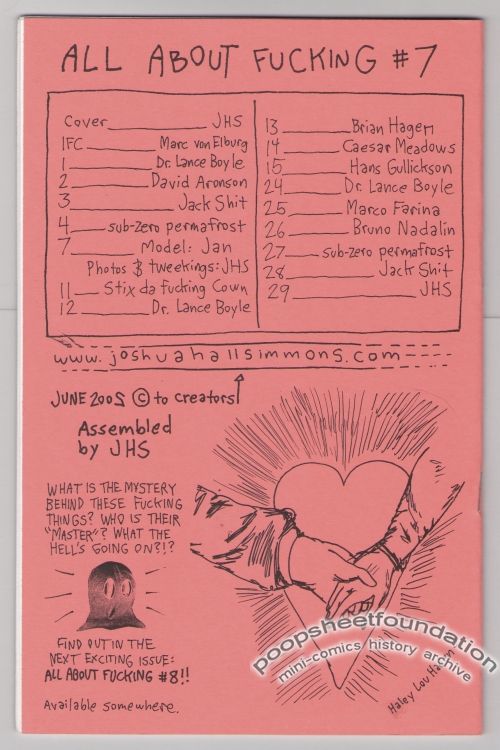 ALL ABOUT FUCKING #7
Cover JHS
IFC Marc von Elburg
1 Dr. Lance Boyle
2 David Aronson
3 Jack Shit
4 sub-zero permafrost
7 Model: Jan
Photos & tweekings: JHS
11 Stix da fucking Cown
12 Dr. Lance Boyle
13 Brian Hagen
14 Caesar Meadows
15 Hans Gullickson
24 Dr. Lance Boyle
25 Marco Farina
26 Bruno Nadalin
27 sub-zero permafrost
28 Jack Shit
29 JHS
www.joshuahallsimmons.com
JUNE 2005 © to creators!
Assembled
by JHS
WHAT IS THE MYSTERY
BEHIND THESE FUCKING
THINGS? WHO IS THEIR
"MASTER"? WHAT THE
HELL'S GOING ON?!?
FIND OUT IN THE
NEXT EXCITING ISSUE:
ALL ABOUT FUCKING #8!!
Available somewhere.
poopsheetfoundation
mini-comics history archive
Haley Lou